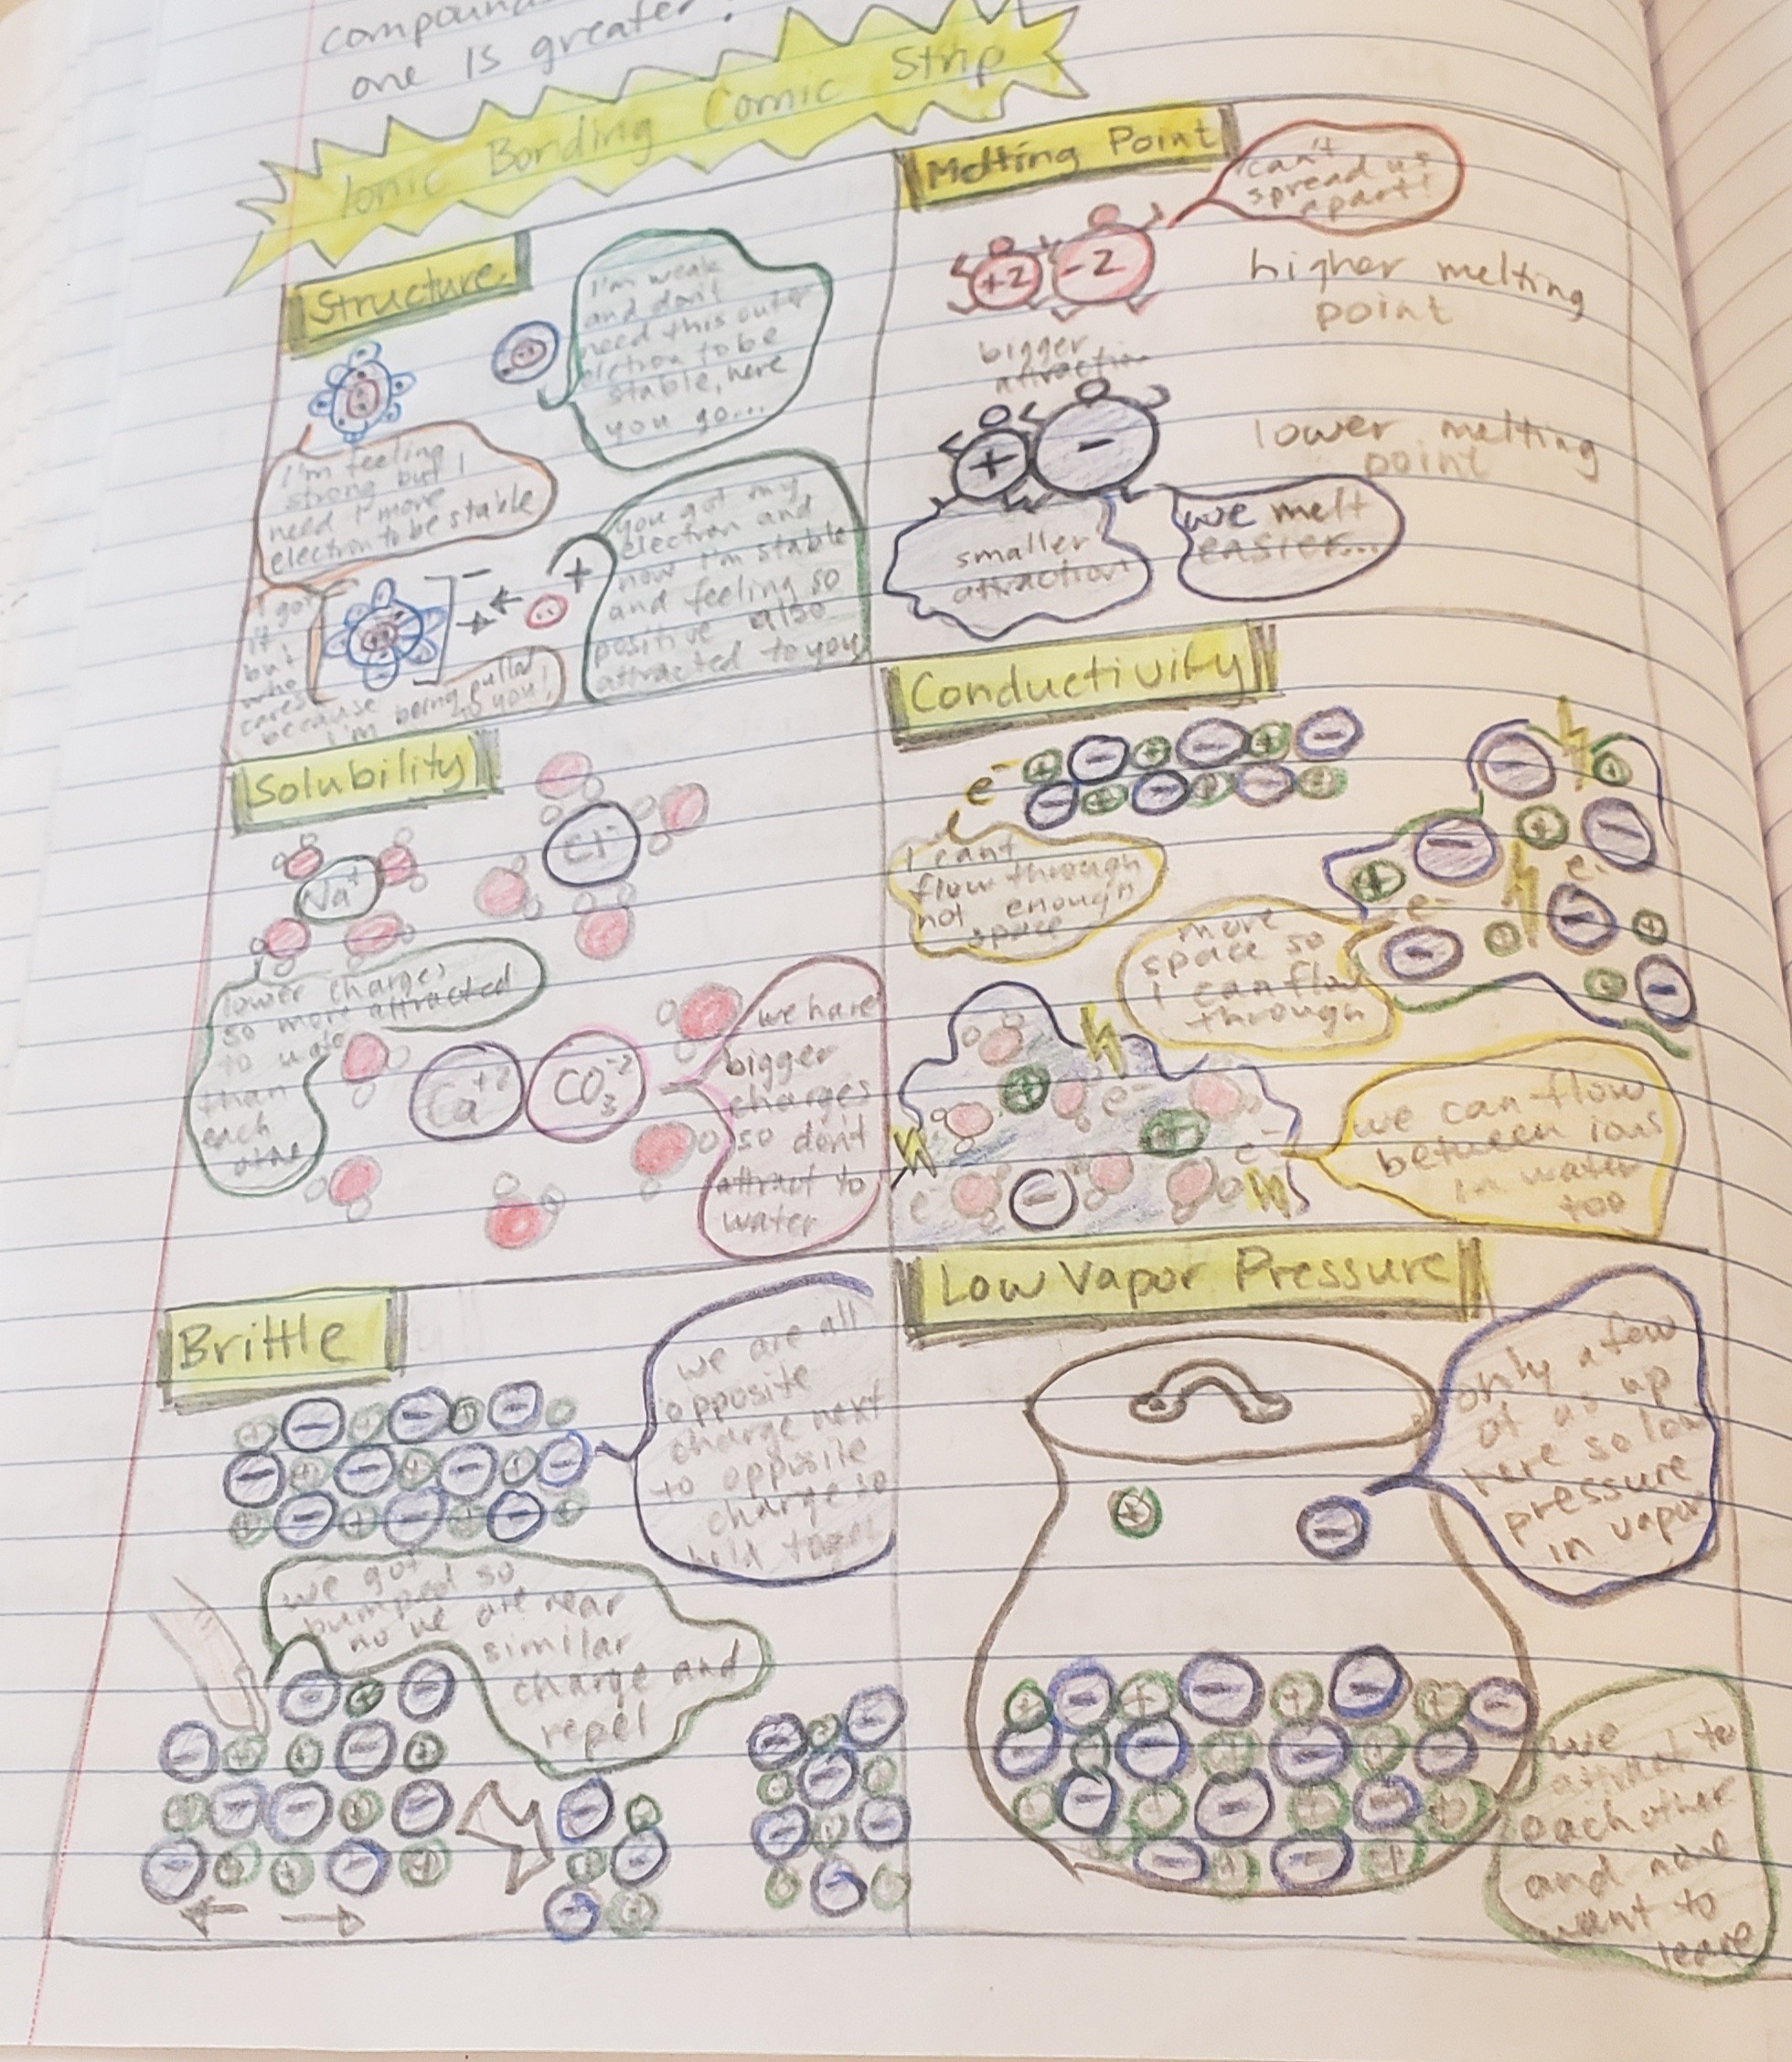 compound
one is greater?
Ionic Bonding Comic Strip
Structure
I'm weak
and don't
need this outer
elctron to be
stable, here
you go...
I'm feeling
strong but I
need 1 more
electron to be stable
you got my
electron and
now I'm stable
and feeling so
positive also
attracted to you
+
−
I got
it
but
who
cares
because
I'm being pulled
to you!
Melting Point
can't
spread us
apart!
+2 -2
higher melting
point
bigger
attraction
+ −
lower melting
point
smaller
attraction
we melt
easier...
Solubility
Cl⁻
Na⁺
lower charges
so more attracted
to
than
each
Ca⁺² CO₃⁻²
we have
bigger
charges
so don't
attract to
water
Conductivity
e⁻
+ − + − + −
− + − + − +
I cant
flow through
not enough
space
− +
− + −
+ e⁻
e⁻ − +
− +
+ −
more
space so
I can flow
through
+ e⁻
+
e⁻
e −
we can flow
between ions
in water
too
Brittle
+ − + − + −
− + − + − + −
+ − + − + − +
we are all
opposite
charge next
to opposite
charge so
held
we got
bumped so
no we are near
similar
charge and
repel
− + −
− + + − +
+ − − + −
− + + − +
− +
+ −
− +
− + −
+ − +
− + −
+ − +
Low Vapor Pressure
only a few
of us up
here so low
pressure
in vapor
+ −
+ − + − + − + −
− + − + − + −
+ − + − + − +
− + − +
we
attract to
each other
and none
want to
leave